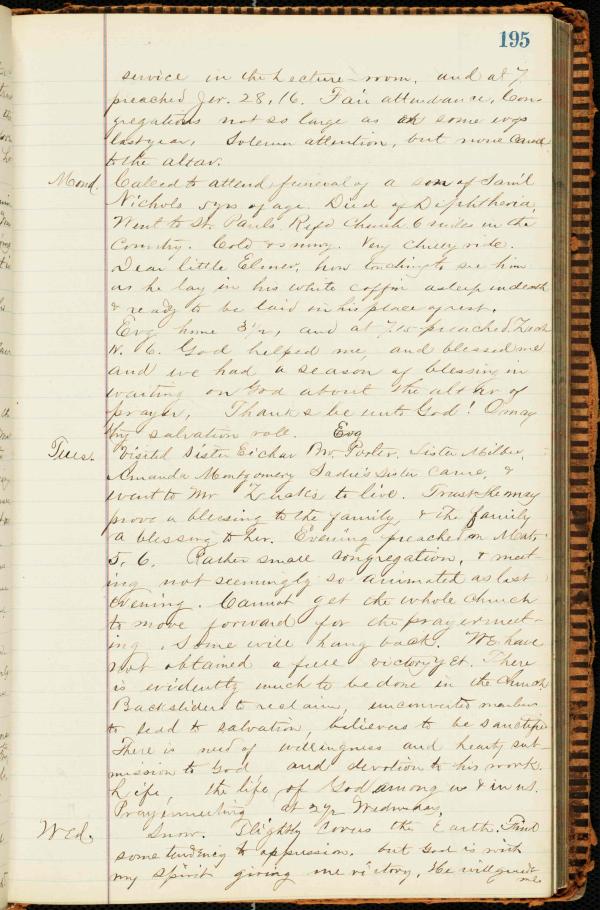 195
service in the Lecture-room, and at 7
preached Jer. 28, 16. Fair attendance, Con-
gregations not so large as on some evgs
last year, Solemn attention, but none came
to the altar.
Mond. Called to attend funeral of a son of Saml
Nichols 5 yrs of age. Died of Diphtheria,
Went to St. Pauls Refd church 6 miles in the
Country. Cold & snowy. Very chilly ride.
Dear little Elmer, how touching to see him
as he lay in his white coffin asleep in death
& ready to be laid in his place of rest.
Evg home 3 1/2, and at 7.15 preached Zech
6. God helped me, and blessed me
and we had a season of blessing in
waiting on God about the altar of
prayer, Thanks be unto God! O may
thy salvation roll. Evg
Tues. Visited Sister Eichar Mr. Porter, Sister Miller,
Amanda Montgomery Sadie's sister came, &
went to Mr to live. Trust she may
prove a blessing to the family, & the family
a blessing to her. Evening preached on Mat.
5, 6. Rather small congregation, & meet-
ing not seemingly so animated as last
evening. Cannot get the whole church
to move forward for the prayer meet-
ing, Some will hang back. We have
not obtained a full victory yet. There
is evidently much to be done in the church
Backsliders to reclaim, unconverted members
to lead to salvation, believers to be sanctified
There is need of willingness and hearty sub-
mission to God and devotion to his work.
Life, the life of God among us & in us.
Prayermeeting at 2 1/2 Wednesday,
Wed. Snow. Slightly covers the Earth. Find
some tendency to oppression. but God is with
my spirit giving me victory, He will guide
me.